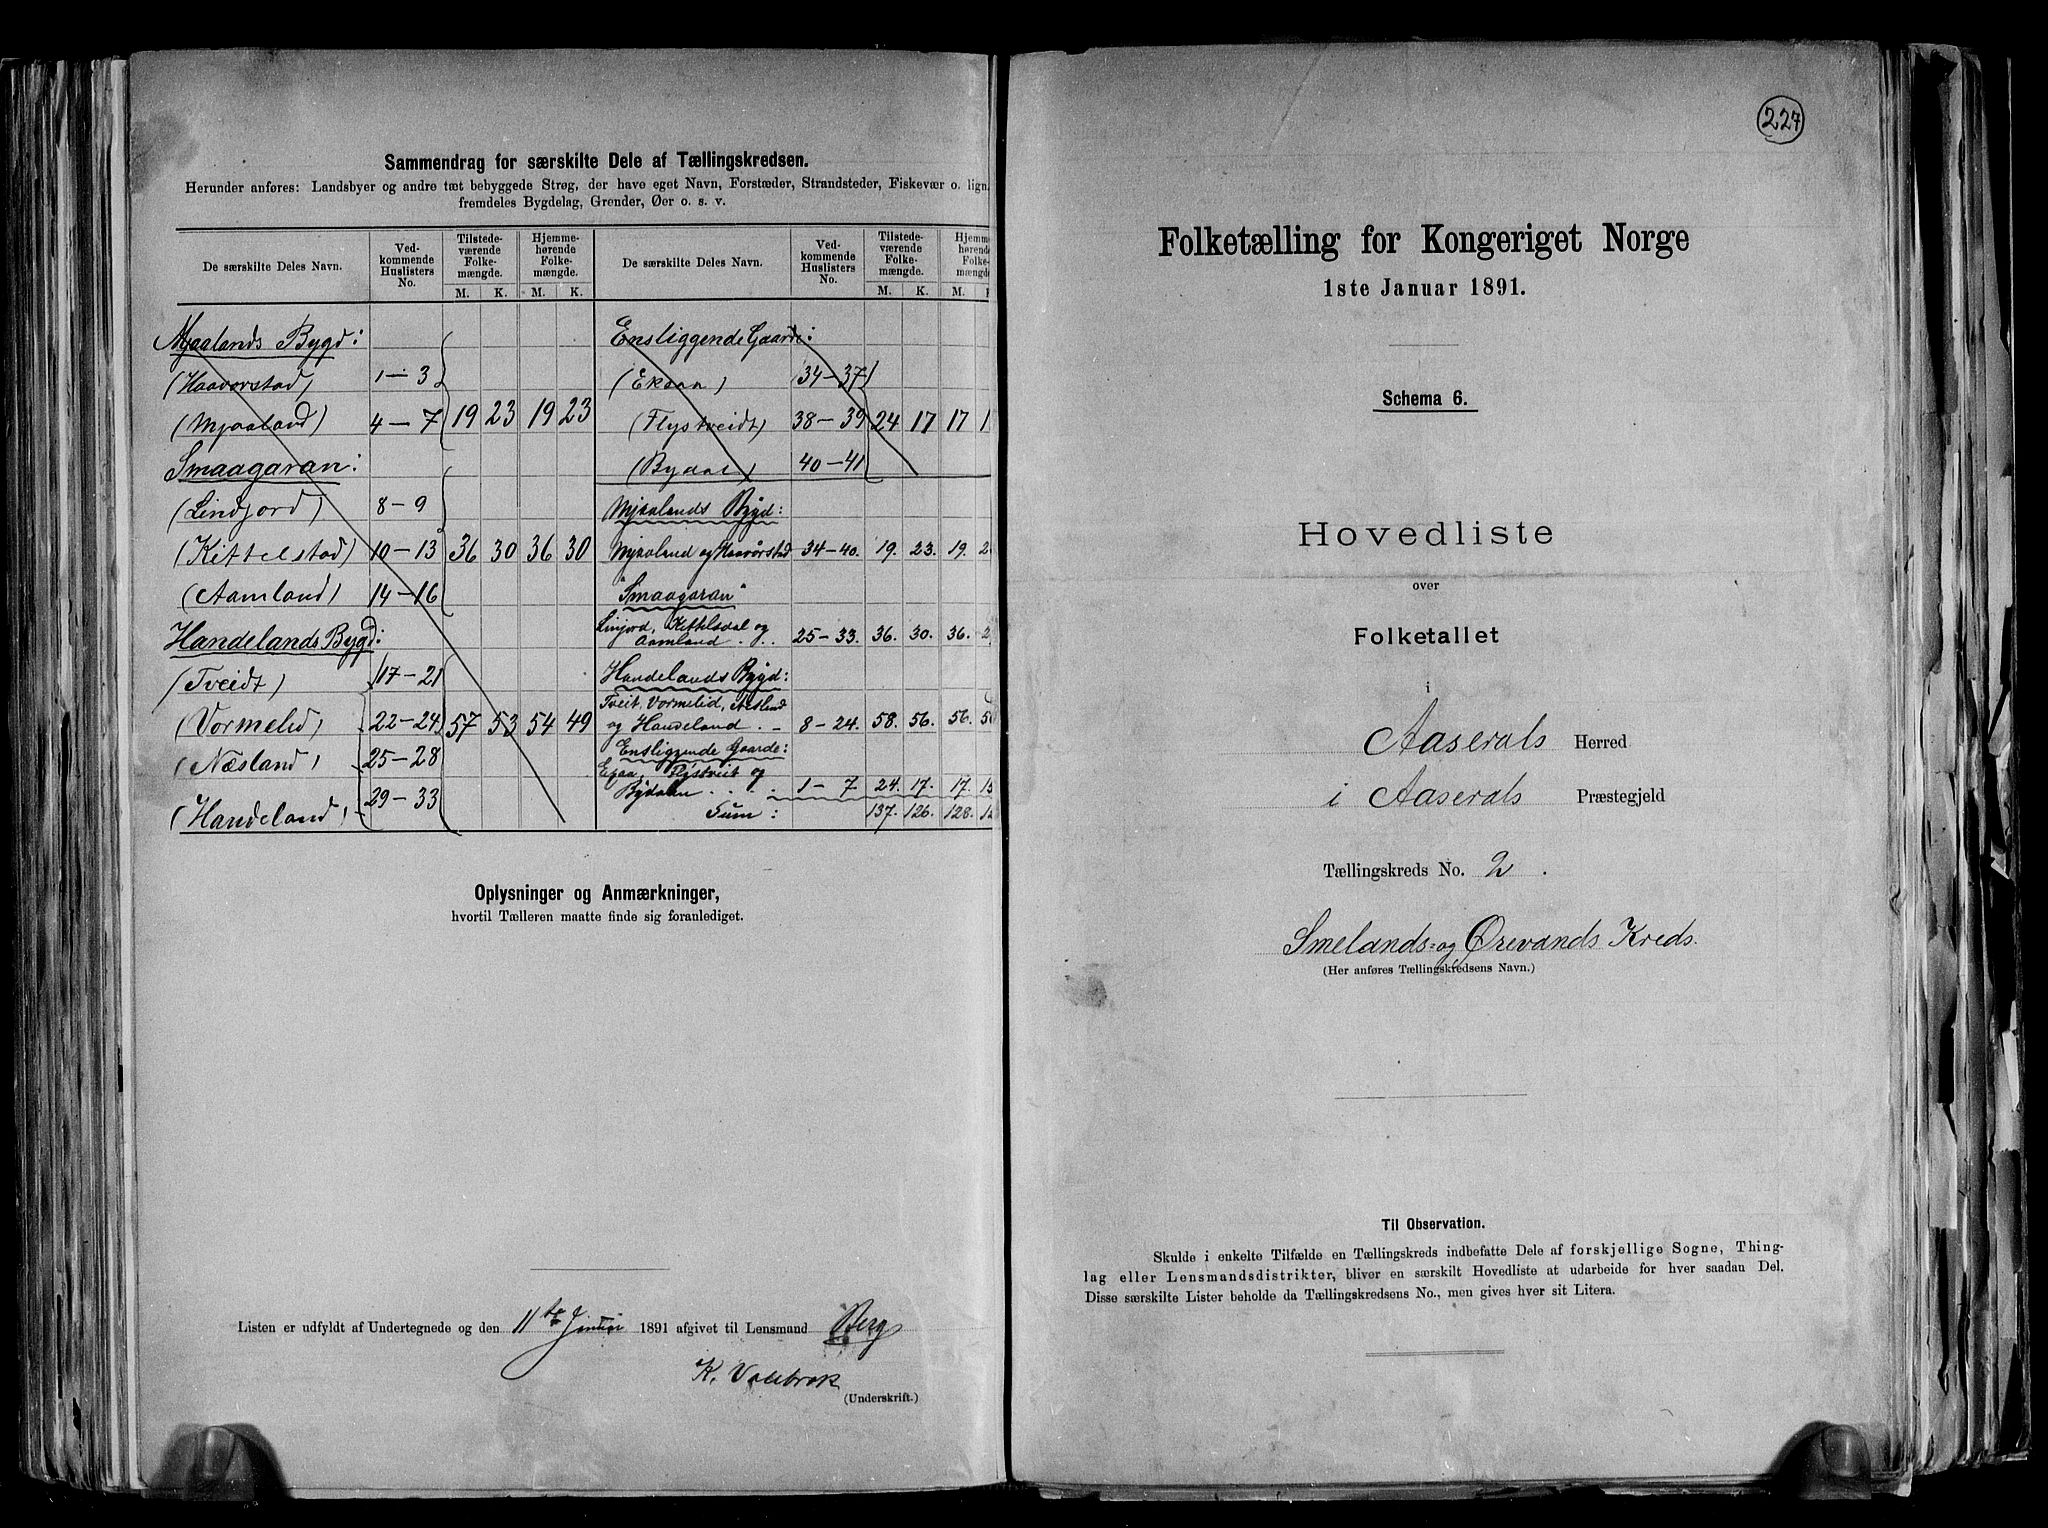 Sammendrag for særskilte Dele af Tællingskredsen.
Herunder anføres: Landsbyer og andre tæt bebyggede Strøg, der have eget Navn, Forstæder, Strandsteder, Fiskevær o. lign.
fremdeles Bygdelag, Grender, Øer o. s. v.
De særskilte Deles Navn. Ved-kommende Huslisters No. Tilstede-værende Folke-mængde. Hjemme-hørende Folke-mængde. De særskilte Deles Navn. Ved-kommende Huslisters No. Tilstede-værende Folke-mængde. Hjemme-hørende Folke-mængde
M. K. M. K. M. K. M. K
Mjaalands Bygd:
(Haavorstad) 1-3
(Mjaaland) 4-7 19 23 19 23
Smaagaran:
(Lindjord) 8-9
(Kittelstad) 10-13 36 30 36 30
(Aamland) 14-16
Handelands Bygd:
(Tveidt) 17-21
(Vormelid) 22-24 57 53 54 49
(Næsland) 25-28
(Handeland) 29-33
Ensliggende Gaarde:
(Ekaa) 34-37
(Flystveidt) 38-39 24 17 17 1
(Bydal) 40-41
Mjaalands Bygd:
Mjaaland og Haavørstad 34-40. 19. 23. 19. 2
"Smaagaran"
Linjord, Kittelsdal og
Aamland . . . 25-33. 36. 30. 36.
Handelands Bygd:
Tveit, Vormelid,
og Handeland . - 8-24. 58. 56. 56. 5
Ensliggende Gaarde:
Flystveit og
Bydalen . . . 1-7 24. 17. 17. 1
Sum: 137. 126. 128. 12
Oplysninger og Anmærkninger,
hvortil Tælleren maatte finde sig foranlediget.
Listen er udfyldt af Undertegnede og den 11te Januar 1891 afgivet til Lensmand Berg
K.
(Underskrift.)
227
Folketælling for Kongeriget Norge
1ste Januar 1891.
Schema 6.
Hovedliste
over
Folketallet
i
Aaserals Herred
i Aaserals Præstegjeld
Tællingskreds No. 2.
Smelands- og Ørevands Kreds.
(Her anføres Tællingskredsens Navn.)
Til Observation.
Skulde i enkelte Tilfælde en Tællingskreds indbefatte Dele af forskjellige Sogne, Thing-
lag eller Lensmandsdistrikter, bliver en særskilt Hovedliste at udarbeide for hver saadan Del.
Disse særskilte Lister beholde da Tællingskredsens No., men gives hver sit Litera.